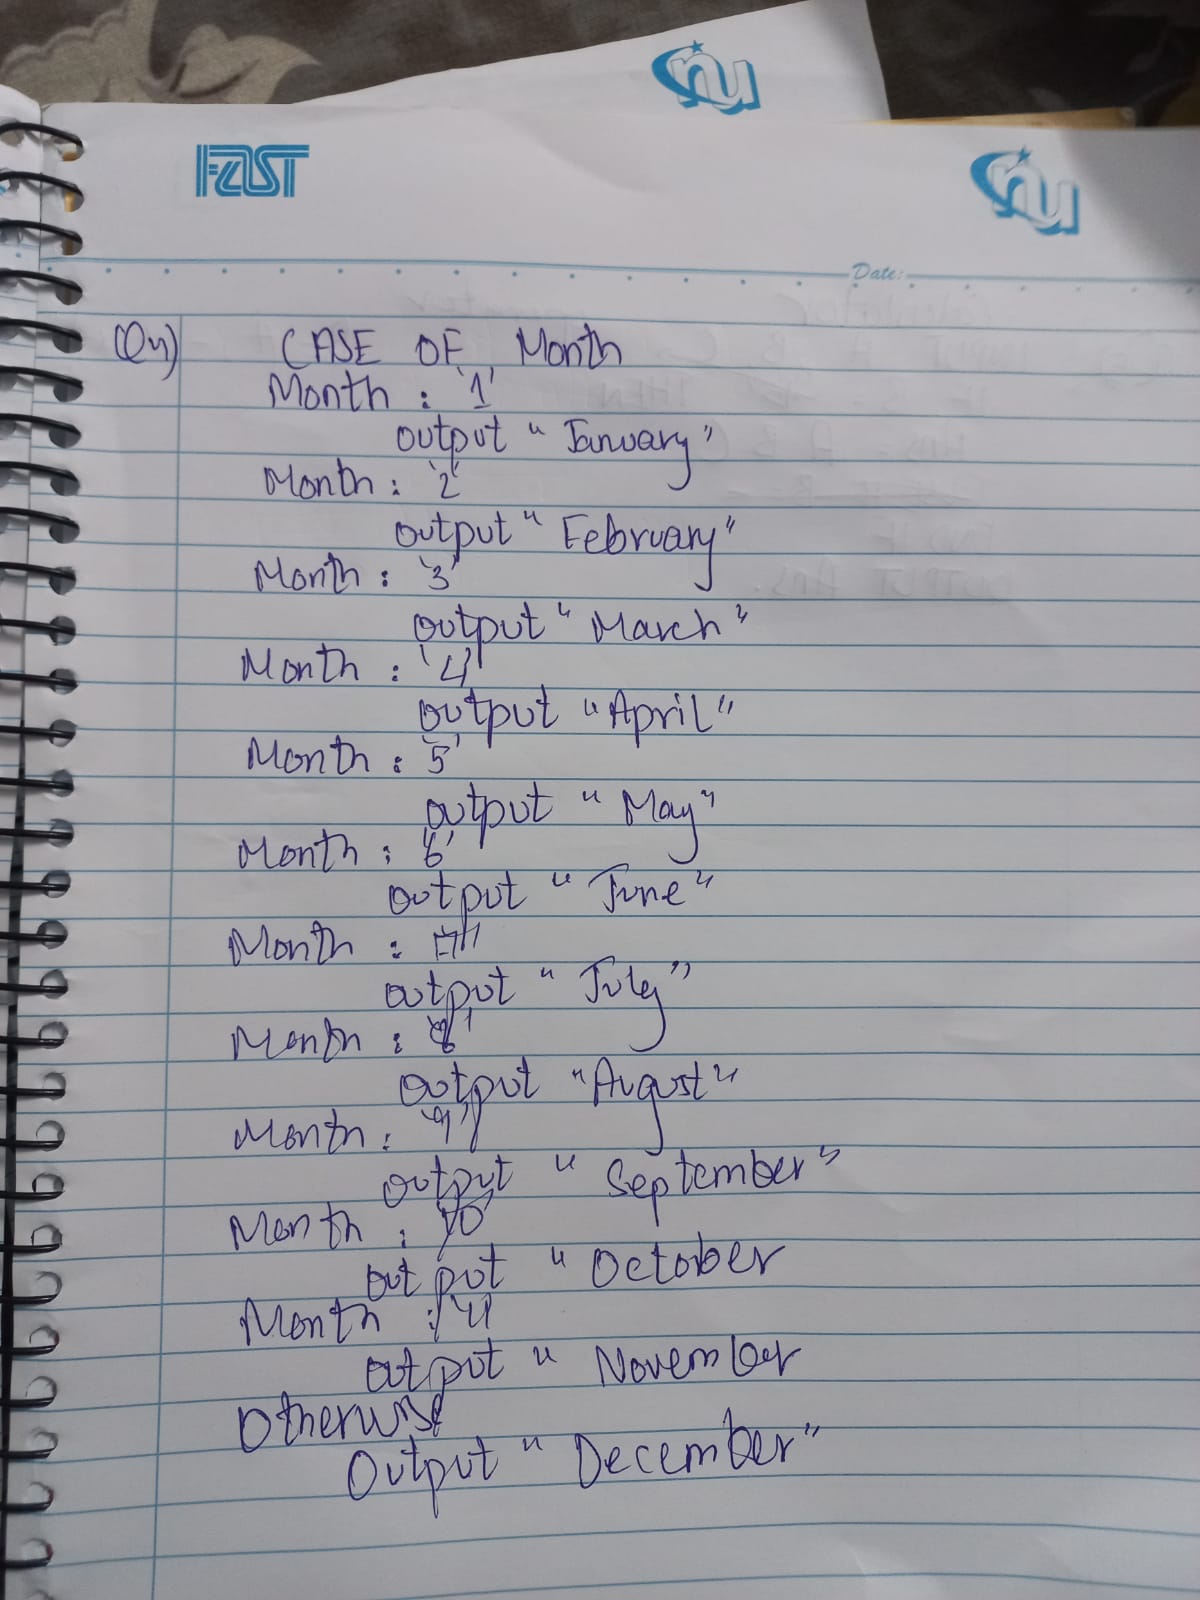 nu
FAST
nu
Date:
Q4) CASE OF Month
Month : '1'
output "January"
Month : '2'
output "February"
Month : '3'
output "March"
Month : '4'
output "April"
Month : '5'
output "May"
Month : '6'
output "June"
Month : '7'
output "July"
Month : '8'
output "August"
Month : '9'
output "September"
Month : '10'
output "October
Month : '11
output "November
Otherwise
Output "December"